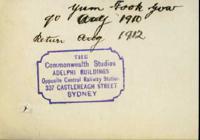 Yum Took You
go Aug 1910
Return Aug 1912
THE
Commonwealth Studios
ADELPHI BUILDINGS
Opposite Central Railway Station
337 CASTLEREAGH STREET
SYDNEY